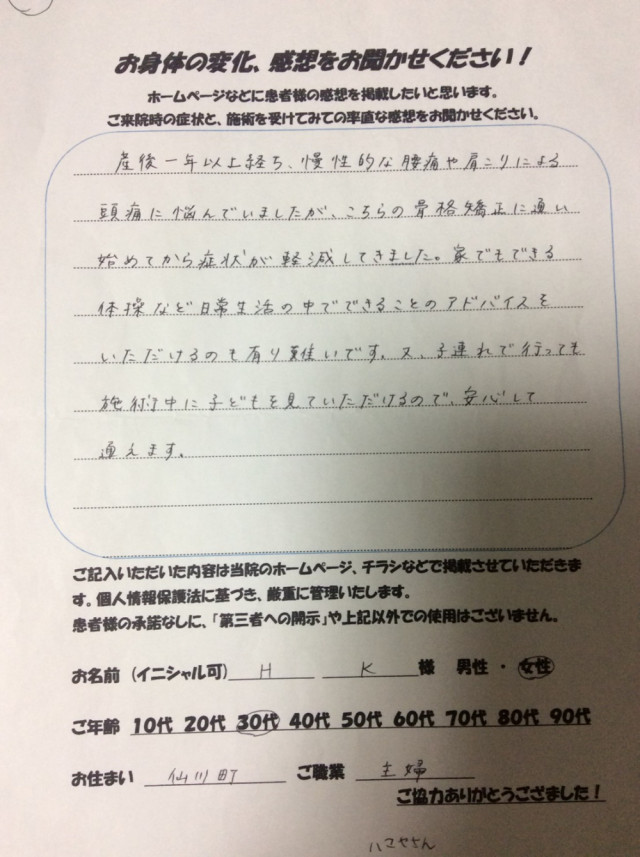 お身体の変化、感想をお聞かせください！
ホームページなどに患者様の感想を掲載したいと思います。
ご来院時の症状と、施術を受けてみての率直な感想をお聞かせください。
産後一年以上経ち、慢性的な腰痛や肩こりによる
頭痛に悩んでいましたが、こちらの骨格矯正に通い
始めてから症状が軽減してきました。家でもできる
体操など日常生活の中でできることのアドバイスを
いただけるのも有り難いです。又、子連れで行っても
施術中に子どもを見ていただけるので、安心して
通えます。
ご記入いただいた内容は当院のホームページ、チラシなどで掲載させていただきま
す。個人情報保護法に基づき、厳重に管理いたします。
患者様の承諾なしに、「第三者への開示」や上記以外での使用はございません。
お名前（イニシャル可） H K 様 男性 ・ 女性
ご年齢 10代 20代 30代 40代 50代 60代 70代 80代 90代
お住まい 仙川町 ご職業 主婦
ご協力ありがとうござました！